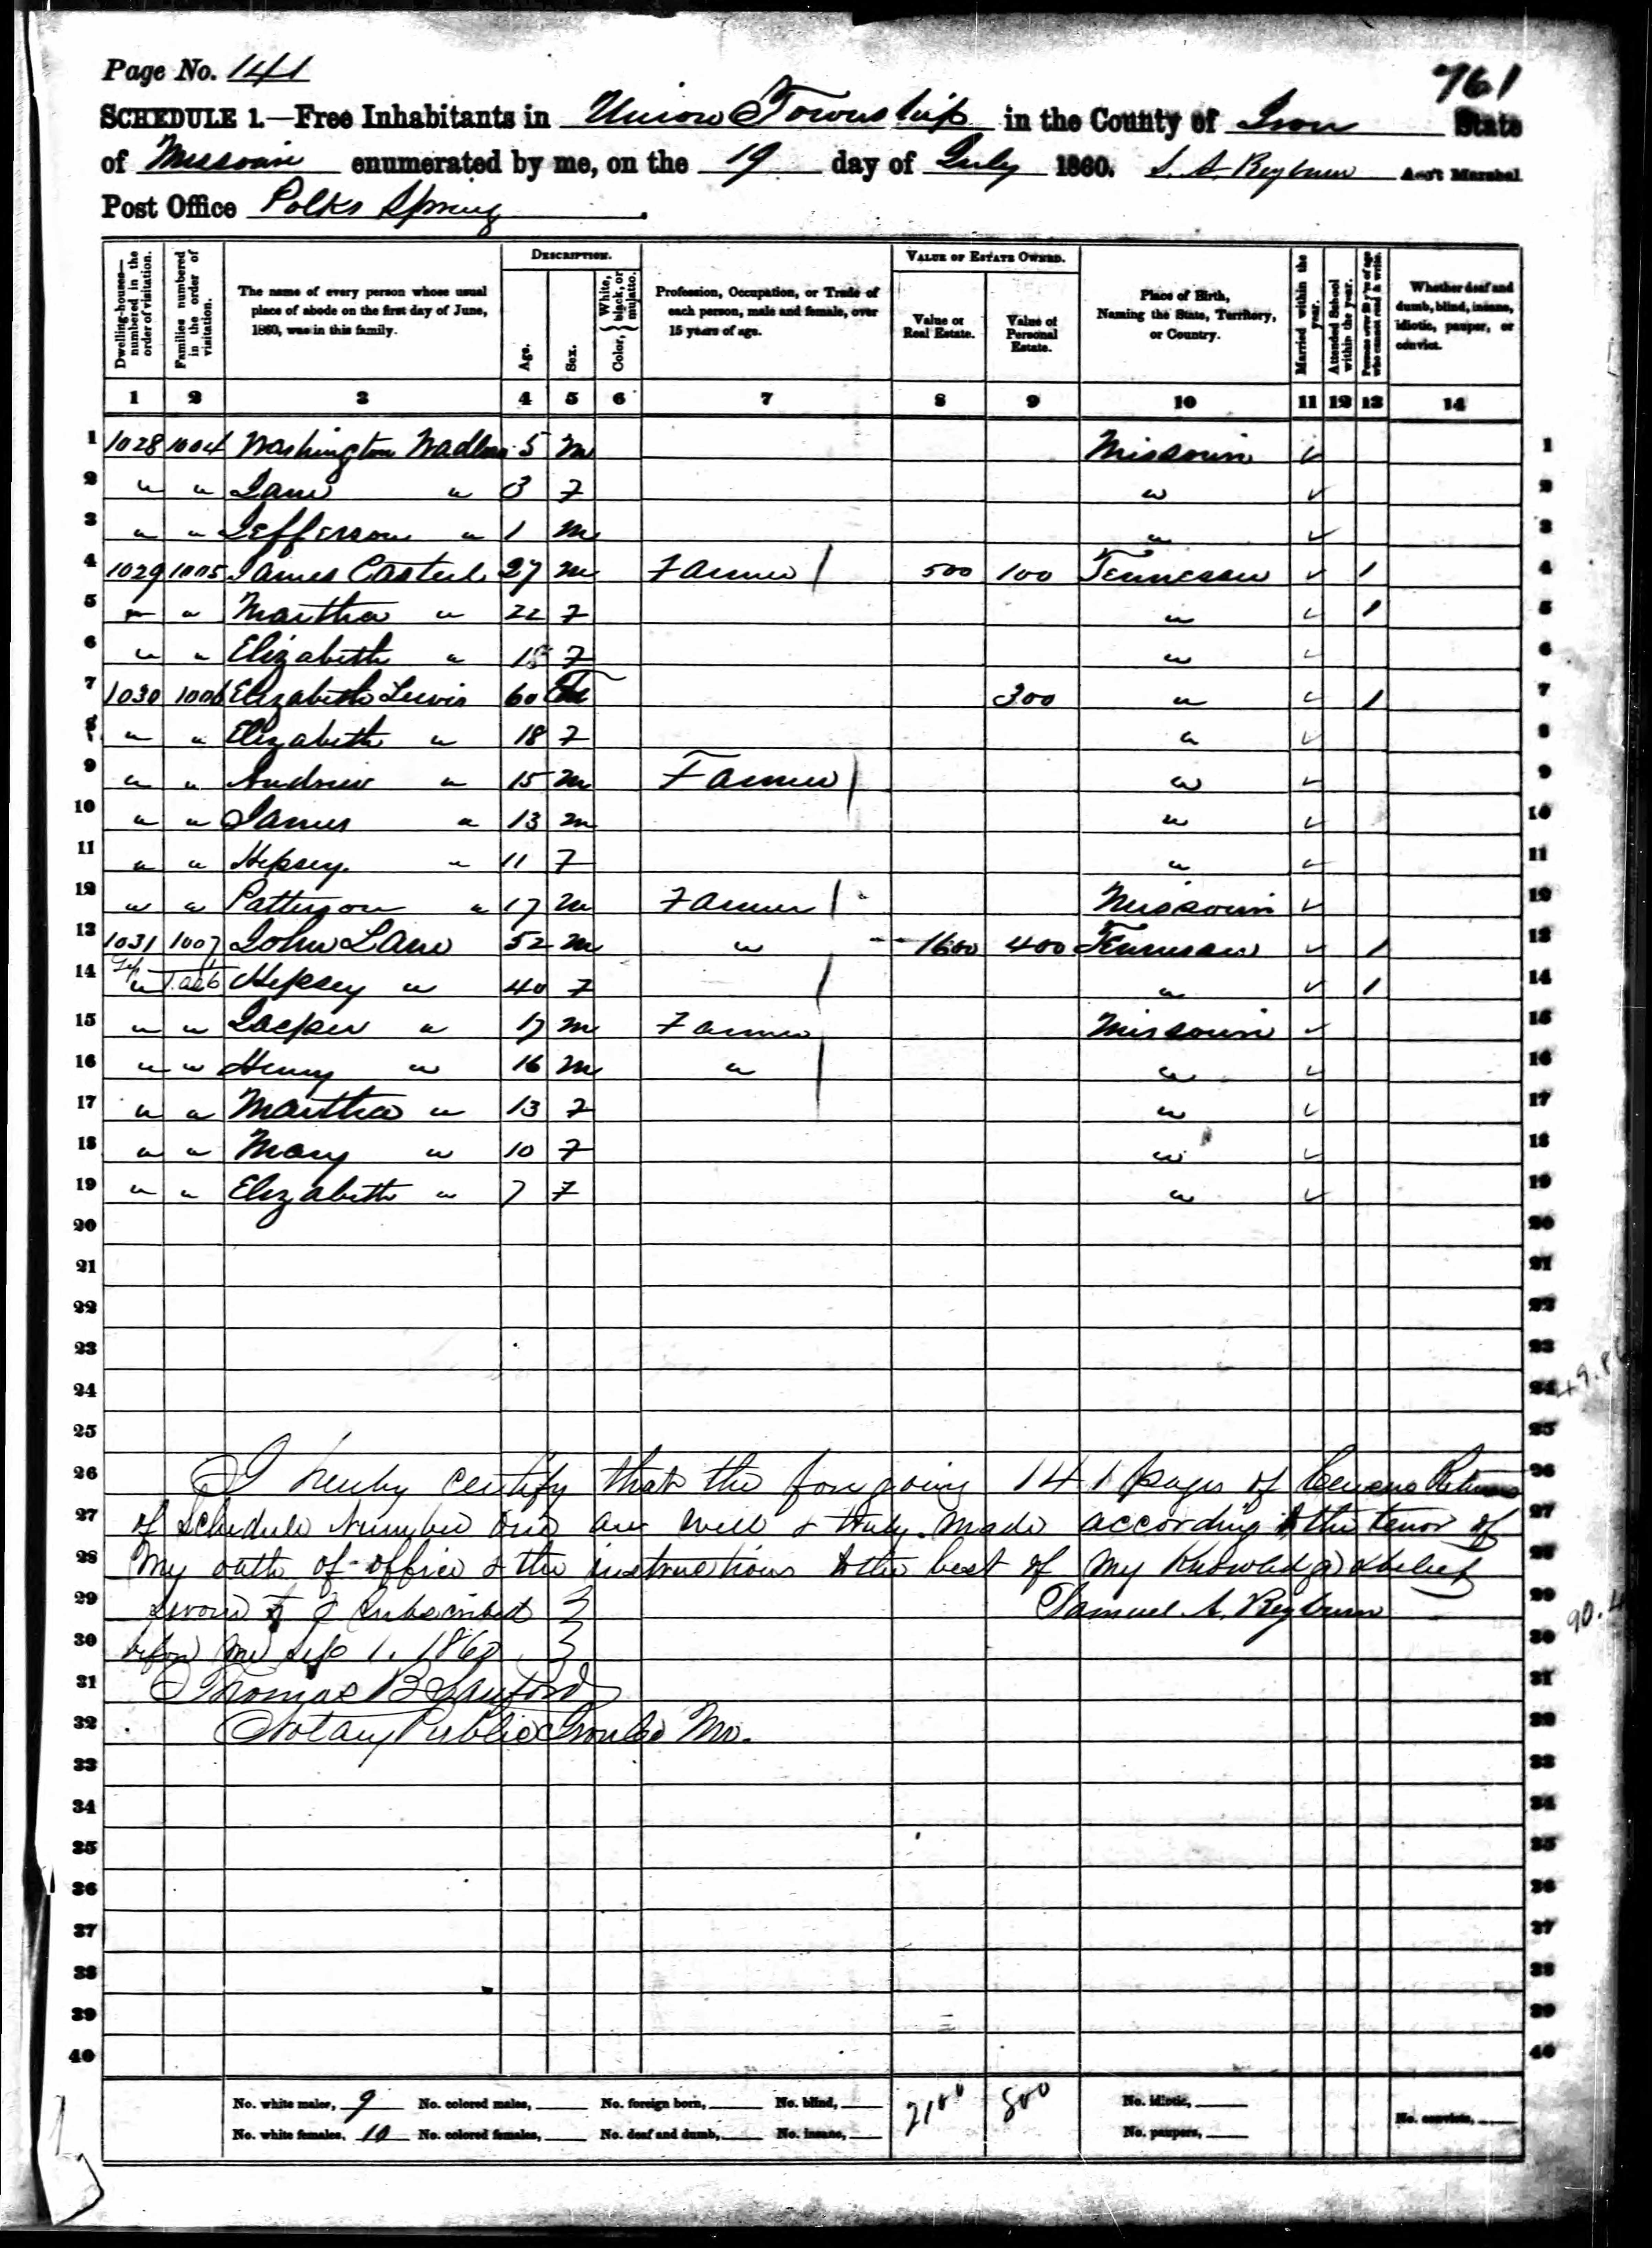 Page No. 141
761
SCHEDULE 1.—Free Inhabitants in Union Township in the County of Iron State
of Missouri enumerated by me, on the 19 day of July 1860. S. A. Reyburn Ass't Marshal
Post Office Polks Spring.
DESCRIPTION.
VALUE OF ESTATE OWNED.
Dwelling-houses—numbered in the order of visitation.
Families numbered in the order of visitation.
The name of every person whose usual place of abode on the first day of June, 1860, was in this family.
Age.
Sex.
Color, { White, black, or mulatto.
Profession, Occupation, or Trade of each person, male and female, over 15 years of age.
Value of Real Estate.
Value of Personal Estate.
Place of Birth, Naming the State, Territory, or Country.
Married within the year.
Attended School within the year.
Persons over 20 y'rs of age who cannot read & write.
Whether deaf and dumb, blind, insane, idiotic, pauper, or convict.
1 2 3 4 5 6 7 8 9 10 11 12 13 14
1 1028 1004 Washington 5 m Missouri ✓ 1
2 " " Jane " 3 F " ✓ 2
3 " " Jefferson " 1 m " ✓ 3
4 1029 1005 James Casteel 27 m Farmer / 500 100 Tennessee ✓ 1 4
5 " " Martha " 22 F " ✓ 1 5
6 " " Elizabeth " F " ✓ 6
7 1030 1006 Elizabeth Lewis 60 F 300 " ✓ 1 7
8 " " Elizabeth " 18 F " ✓ 8
9 " " Andrew " 15 m Farmer / " ✓ 9
10 " " James " 13 m " ✓ 10
11 " " Hepsey " 11 F " ✓ 11
12 " " Patterson " 17 m Farmer / Missouri ✓ 12
13 1031 1007 John Lane 52 m " 1600 400 Tennessee ✓ 1 13
14 " Hepsey " 40 F / " ✓ 1 14
15 " " " 17 m Farmer Missouri ✓ 15
16 " " Henry " 16 m " / " ✓ 16
17 " " Martha " 13 F " ✓ 17
18 " " Mary " 10 F " ✓ 18
19 " " Elizabeth " 7 F " ✓ 19
20 20
21 21
22 22
23 23
24 24
25 25
26 I hereby certify that the foregoing 141 pages of Census Returns 26
27 of Schedule Number One are well & truly made according to the tenor of 27
28 my oath of office & the instructions to the best of my Knowledge & belief 28
29 Sworn to & Subscribed } Samuel A. Reyburn 29
30 before me Sep 1. 1860 } 30
31 Thomas B Sanford 31
32 Notary Public Iron Co Mo. 32
33 33
34 34
35 35
36 36
37 37
38 38
39 39
40 40
No. white males, 9 No. colored males, No. foreign born, No. blind, 2100 800 No. idiotic, No. convicts,
No. white females, 10 No. colored females, No. deaf and dumb, No. insane, No. paupers,